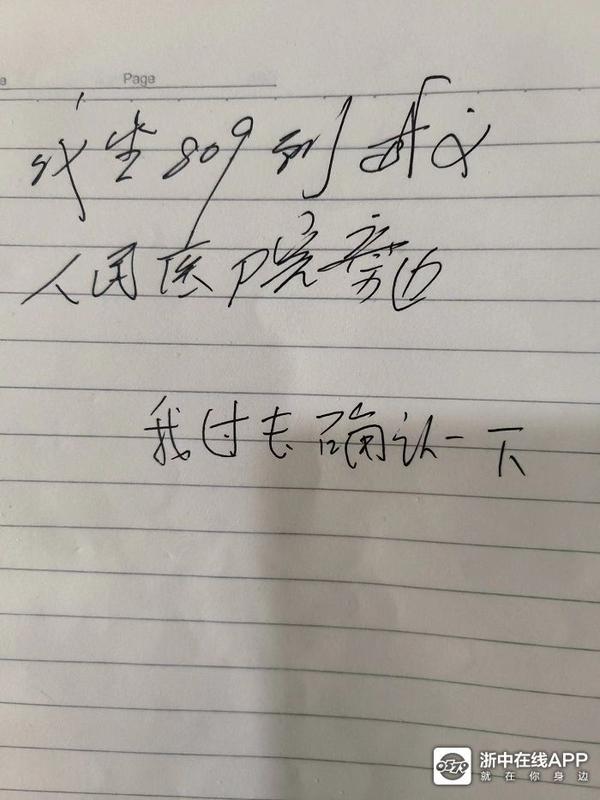 Page
我坐809到武义
人民医院旁边
我过去确认一下
浙中在线APP
就在你身边